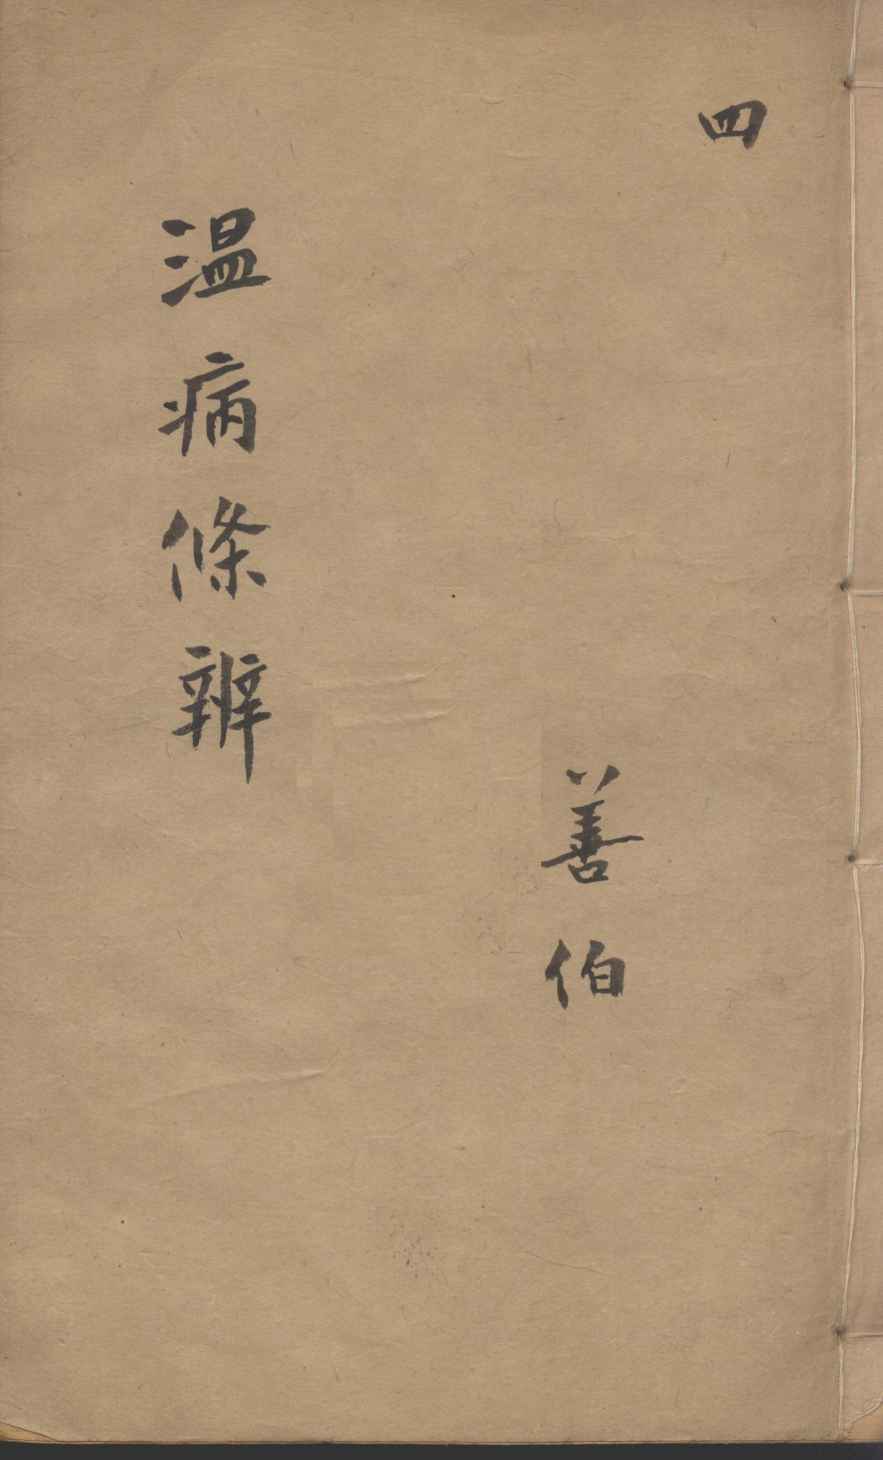 四
善伯
温病條辨